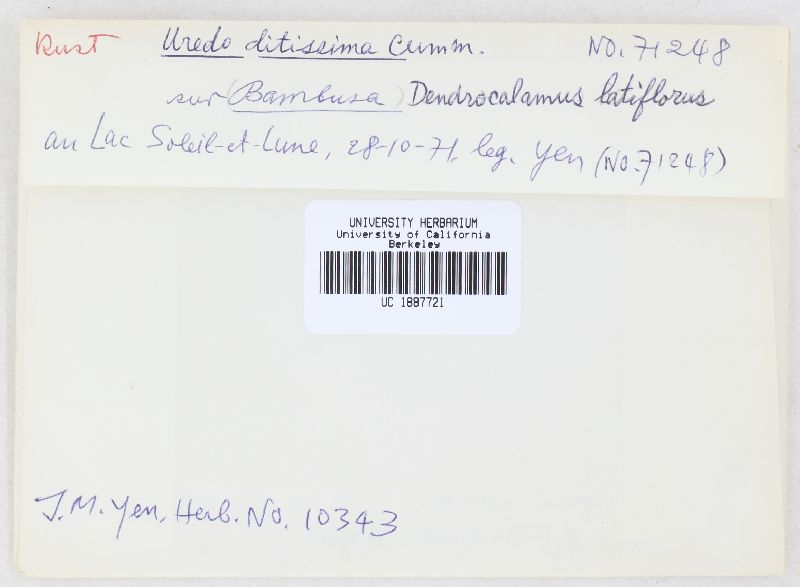 Rust Uredo ditissima Cumm. NO. 71248
sur (Bambusa) Dendrocalamus latiflorus
au Lac Soleil-et-Lune, 28-10-71, leg. Yen (NO. 71248)
UNIVERSITY HERBARIUM
University of California
Berkeley
UC 1887721
J.M. Yen, Herb. No. 10343